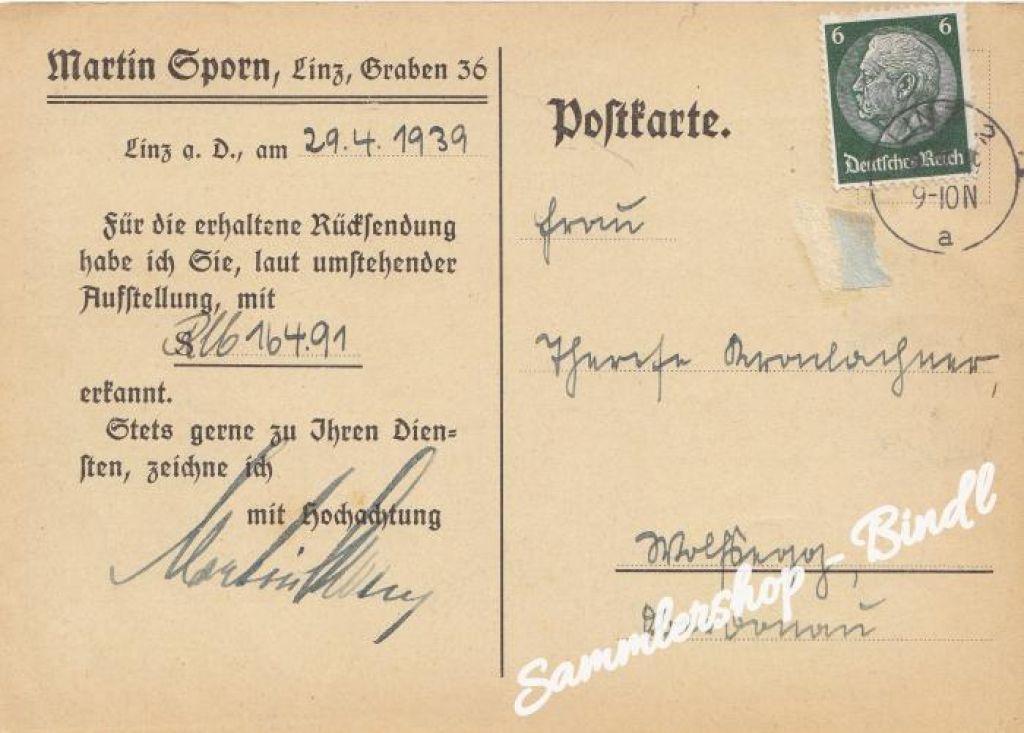 Martin Sporn, Linz, Graben 36
Linz a. D., am 29.4. 1939
Für die erhaltene Rücksendung
habe ich Sie, laut umstehender
Aufstellung, mit
RM 164.91
erkannt.
Stets gerne zu Ihren Dien-
sten, zeichne ich
mit Hochachtung
Martin Sporn
Postkarte.
6 6
Deutsches Reich
LINZ 2
9-10 N
a
Frau
Therese Kronlachner,
Wolfsegg,
donau
Sammlershop - Bindl